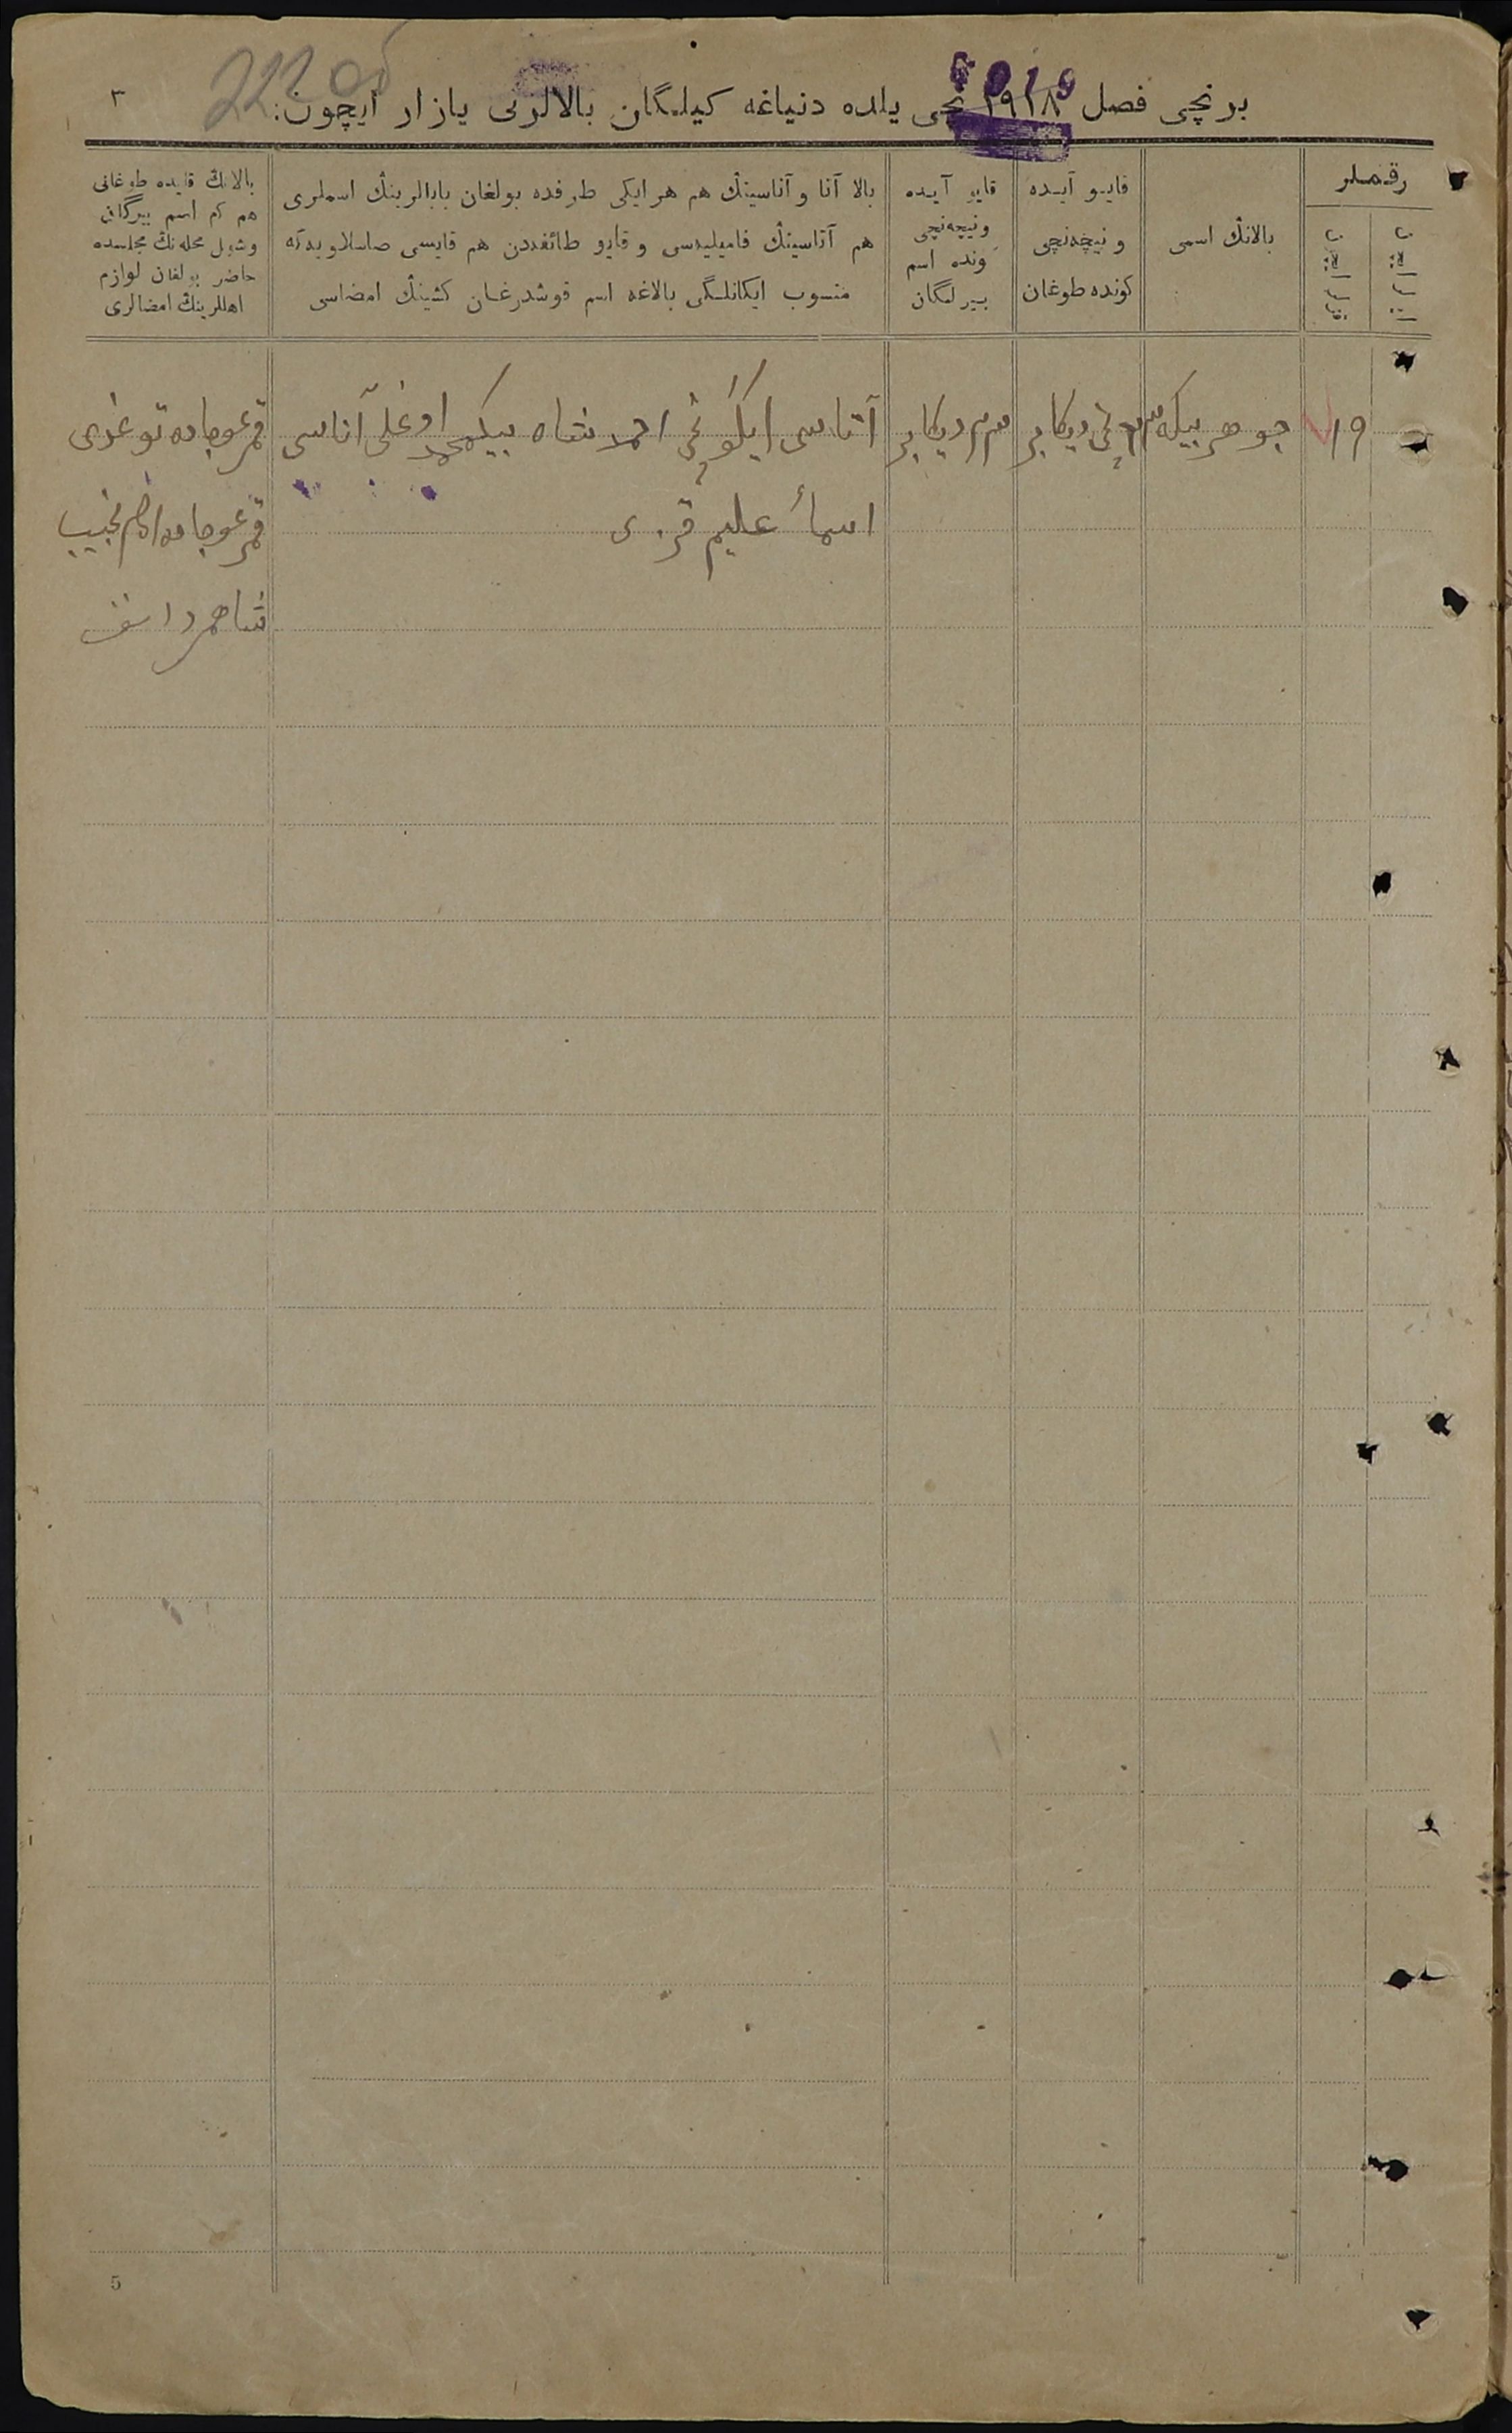 برنچی فصل ١٩١٨ نچی یلده دنیاغه کیلگان بالالرنی یازار ایچون:
٣
رقملر
بالانڭ اسمی
قایو آیده
و نیچه‌نچی
کونده طوغان
قایو آیده
و نیچه‌نچی
کونده اسم
بیرلگان
بالا آتا و آناسینڭ هم هر ایکی طرفده بولغان بابالرینڭ اسملری
هم آتاسینڭ فامیلیه‌سی و قایو طائفه‌دن هم قایسی صاسلاویه‌گه
منسوب ایکانلگی بالاغه اسم قوشدرغان کشینڭ امضاسی
بالانڭ قایده طوغانی
هم کم اسم بیرگانی
وشول محله‌نڭ مجلسده
حاضر بولغان لوازم
اهللرینڭ امضالری
١٩
جوهر بیکه
دیکابر
دیکابر
آتاسی ایگونچی احمد شاه بیکمحمد اوغلی آناسی
اسمأ علیم قزی
توغدی
شاهمردانف
5